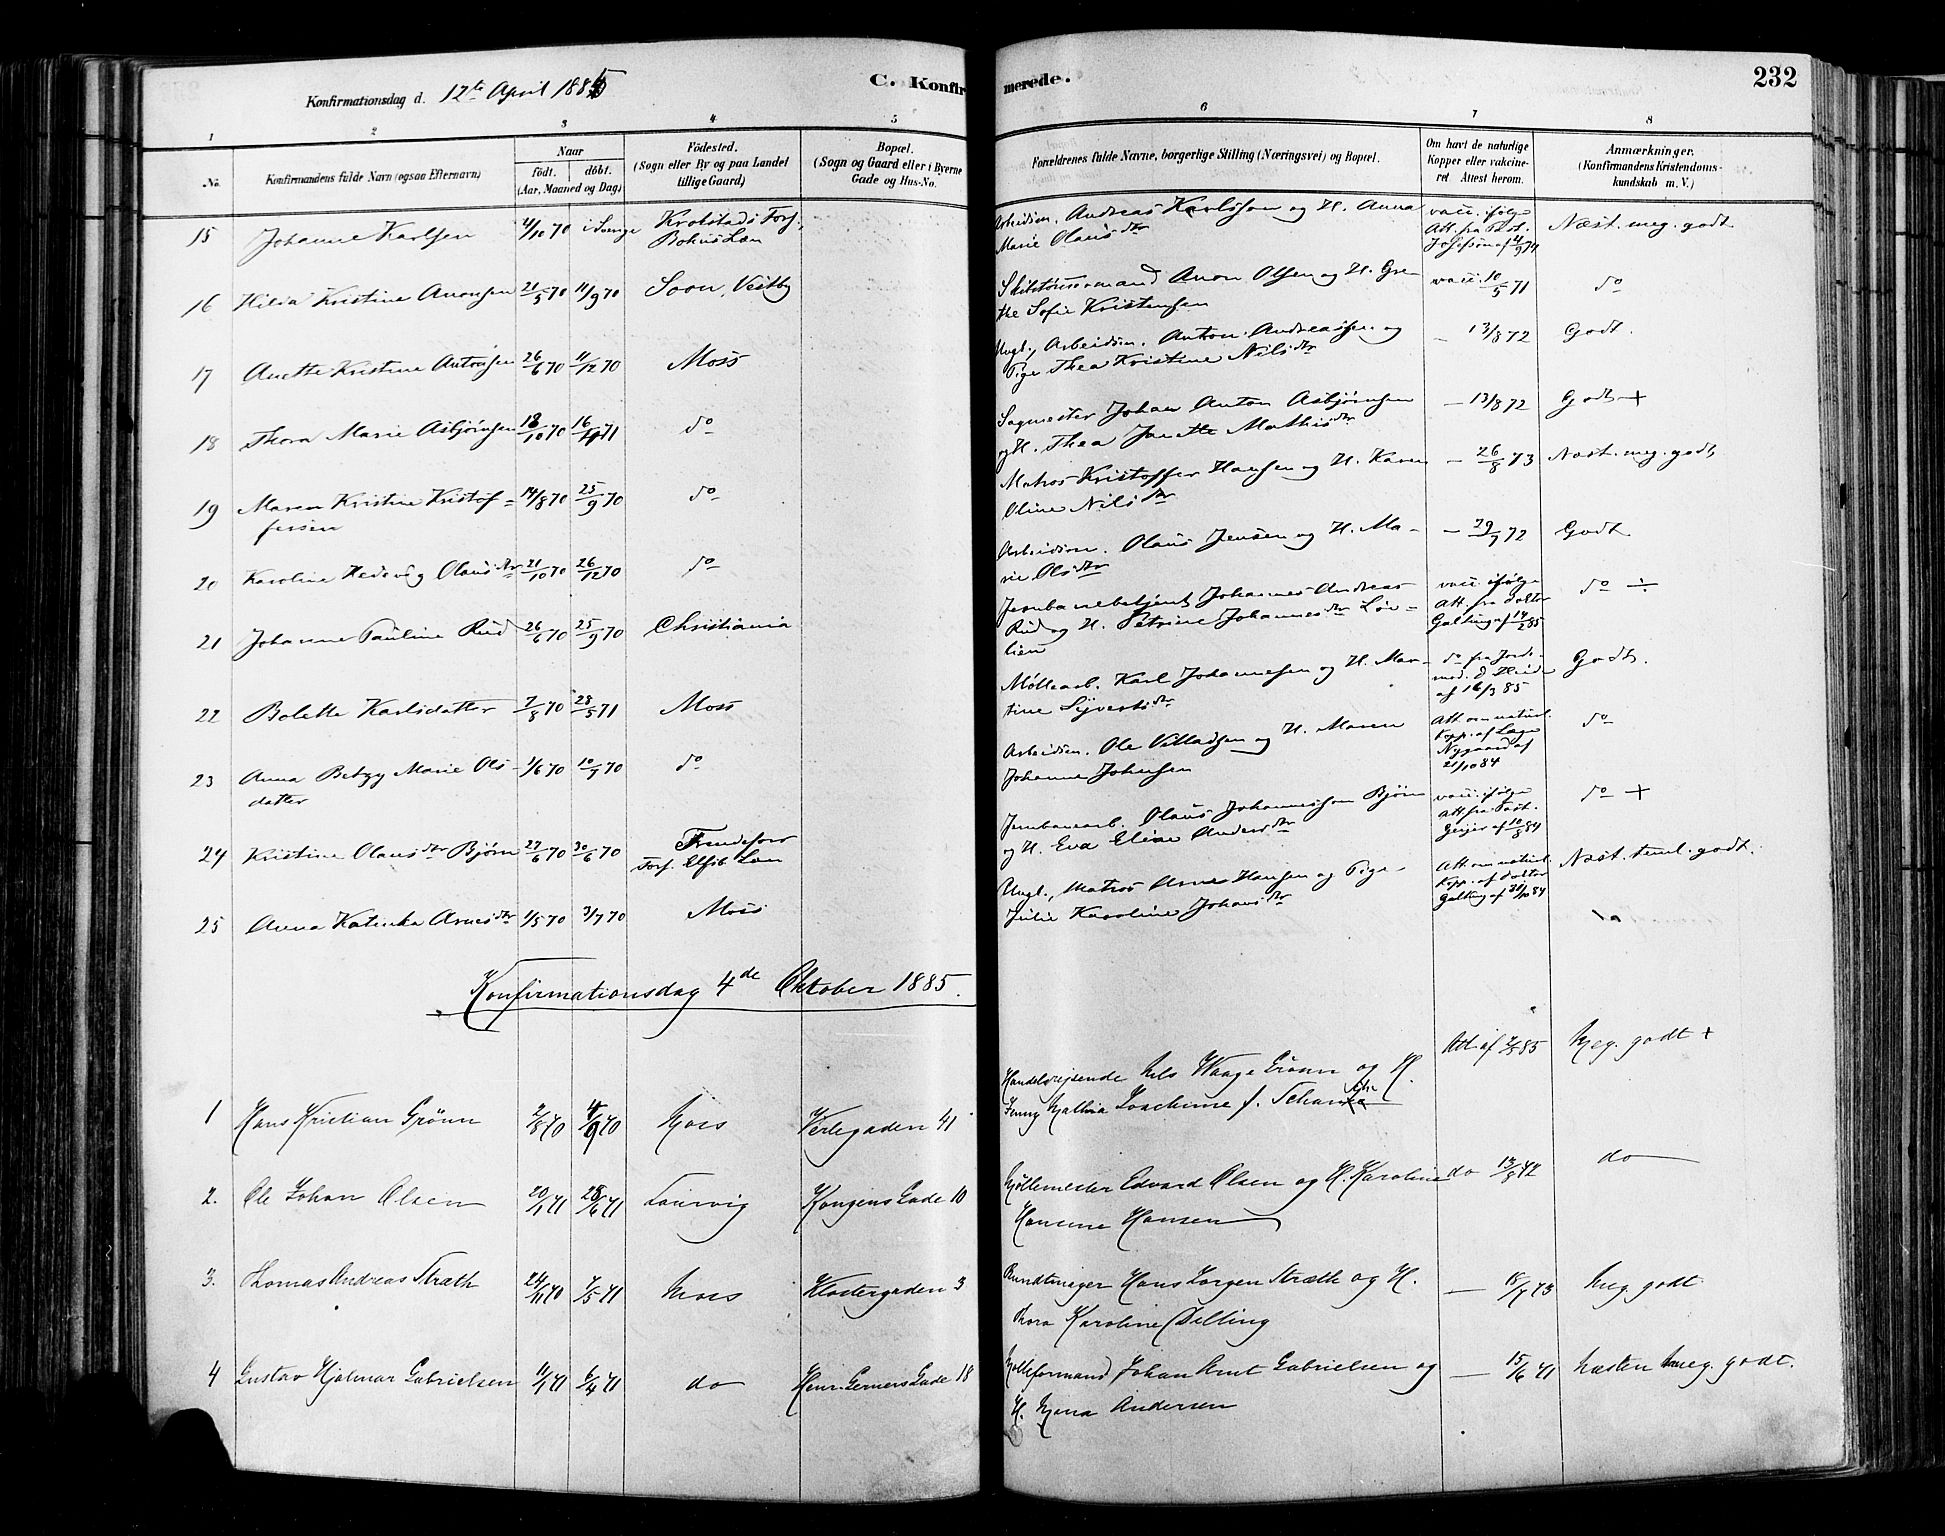 Konfirmationsdag d. 12te April 1885
C. Konfirmerede.
232
1 2 3 4 5 6 7 8
No.
Konfirmandens fulde Navn (ogsaa Efternavn)
Naar
födt. döbt.
(Aar, Maaned og Dag)
Födested.
(Sogn eller By og paa Landet
tillige Gaard)
Bopæl.
(Sogn og Gaard eller i Byerne
Gade og Hus-No.
Forældrenes fulde Navne, borgerlige Stilling (Næringsvei) og Bopæl.
Om havt de naturlige
Kopper eller vakcine-
ret. Attest herom.
Anmærkninger.
(Konfirmandens Kristendoms-
kundskab m. V.)
15 Johanne Karlsen 4/10 70 i Sverige Krokstads Fors. Bohus Læn
Arbeidsm. Andreas Karlsson og H. Anna
Marie Olausdtr
vacc. ifølge
Att. fra
Næst. meg. godt
16 Hilda Kristine Aronsen 21/5 70 11/9 70 Soon, Vestby
Aron Olsen og H. Gre-
the Sofie Kristensen
vacc. 10/5 71 do
17 Anette Kristine Antonsen 26/6 70 11/12 70 Moss
Ungk., Arbeidsm. Anton Andreassen og
Pige Thea Kristine Nilsdtr
– 13/8 72 Godt.
18 Thora Marie Asbjørnsen 18/10 70 16/4 71 do
Sagmester Johan Anton Asbjørnsen
og H. Thea Janette Mathisdtr
– 13/8 72 Godt +
19 Maren Kristine Kristof-
fersen 14/8 70 25/9 70 do
Matros Kristoffer Hansen og H. Karen
Oline Nilsdtr
– 26/8 73 Næst. meg. godt
20 Karoline Hedevig Olausdtr 21/10 70 26/12 70 do
Arbeidsm. Olaus Jensen og H. Ma-
rie Olsdtr
– 29/7 72 Godt
21 Johanne Pauline Rud 26/6 70 25/9 70 Christiania
Jernbanebetjent Johannes Andreas
Rud og H. Petrine Johannesdtr Løv-
lien
vacc. ifølge
Att. fra Doktor
Galtung af 14/2 85
do ÷
22 Bolette Karlsdatter 7/8 70 28/5 71 Moss
Møllearb. Karl Johannesen og H. Mar-
tine Syvertsdtr
do fra Jorde-
mod.
af 16/3 85
Godt.
23 Anna Betzy Marie Ols-
datter 1/6 70 10/7 70 do
Arbeidsm. Ole Villadsen og H. Maren
Johanne Johnsen
Att. om naturl.
Kopp. af Læge
Nygaard af
21/10 84
do
24 Kristine Olausdtr Bjørn 27/6 70 30/6 70
Fors. Elfsb. Læn
Jernbanearb. Olaus Johannesson Bjørn
og H. Eva Elise Andersdtr
vacc. ifølge
Att. fra Past.
Geijer af 10/8 84
do +
25 Anna Katinka Arnesdtr 1/5 70 3/7 70 Moss
Ungk., Matros Arne Hansen og Pige
Julie Karoline Johansdtr
Att. om naturl.
Kopp. af Doktor
Galtung af 31/10 84
Næst. teml. godt.
Konfirmationsdag 4de Oktober 1885.
1 Hans Kristian Grönn 2/8 70 4/9 70 Moss Verlegaden 41
Handelsrejsende Nils Waage Grönn og H.
Jenny Mathia Joachime f.
Att. af 2/5 85 Meg. godt +
2. Ole Johan Olsen 20/1 71 28/6 71 Laurvig Kongens Gade 10
Møllemester Edvard Olsen og H. Karoline
Hansine Hansen
do 13/8 72 do
3. Thomas Andreas Stræth 24/11 70 7/5 71 Moss Klostergaden 3
Bundtmager Hans Jørgen Stræth og H.
Thora Karoline Delling
— 18/7 73 Meg. godt
4 Gustav Hjalmar Gabrielsen 11/1 71 6/4 71 do Henr. Gerners Gade 18
Mølleformand Johan Arnt Gabrielsen og
H. Mina Andersen
— 15/6 71 næsten meg. godt.